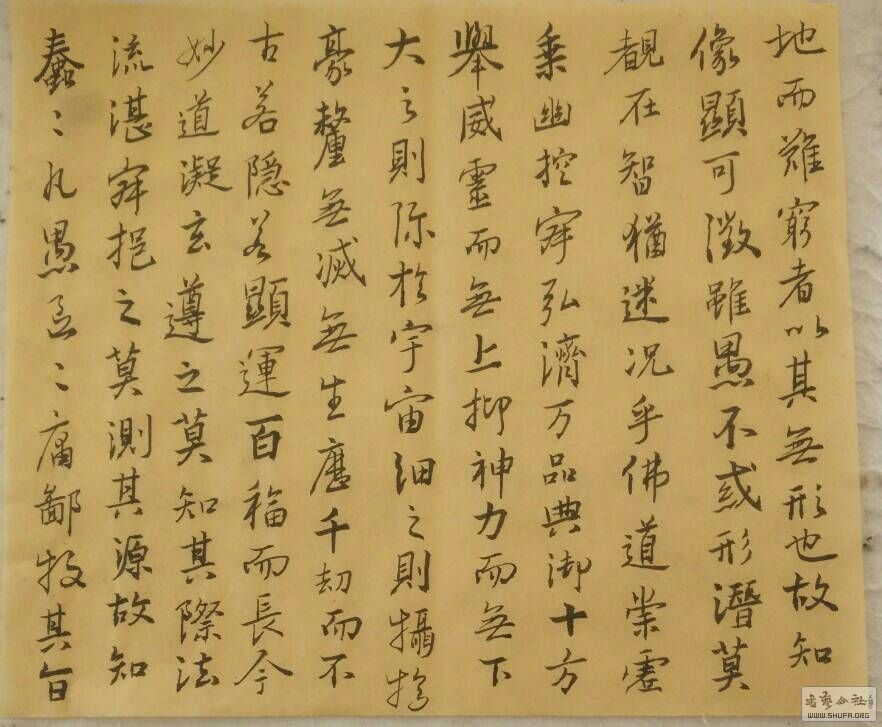 地而難窮者以其無形也故知
像顯可徵雖愚不惑形潛莫
覩在智猶迷况乎佛道崇虛
乗幽控寂弘濟万品典御十方
舉威靈而無上抑神力而無下
大之則弥於宇宙細之則攝於
豪釐無滅無生歷千劫而不
古若隱若顯運百福而長今
妙道凝玄遵之莫知其際法
流湛寂挹之莫測其源故知
蠢〻凡愚區〻庸鄙投其旨
WWW.SHUFA.ORG